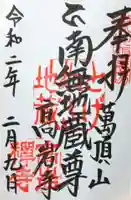 奉拝
萬頂山
南無地蔵尊
高岩寺
令和二年 二月九日